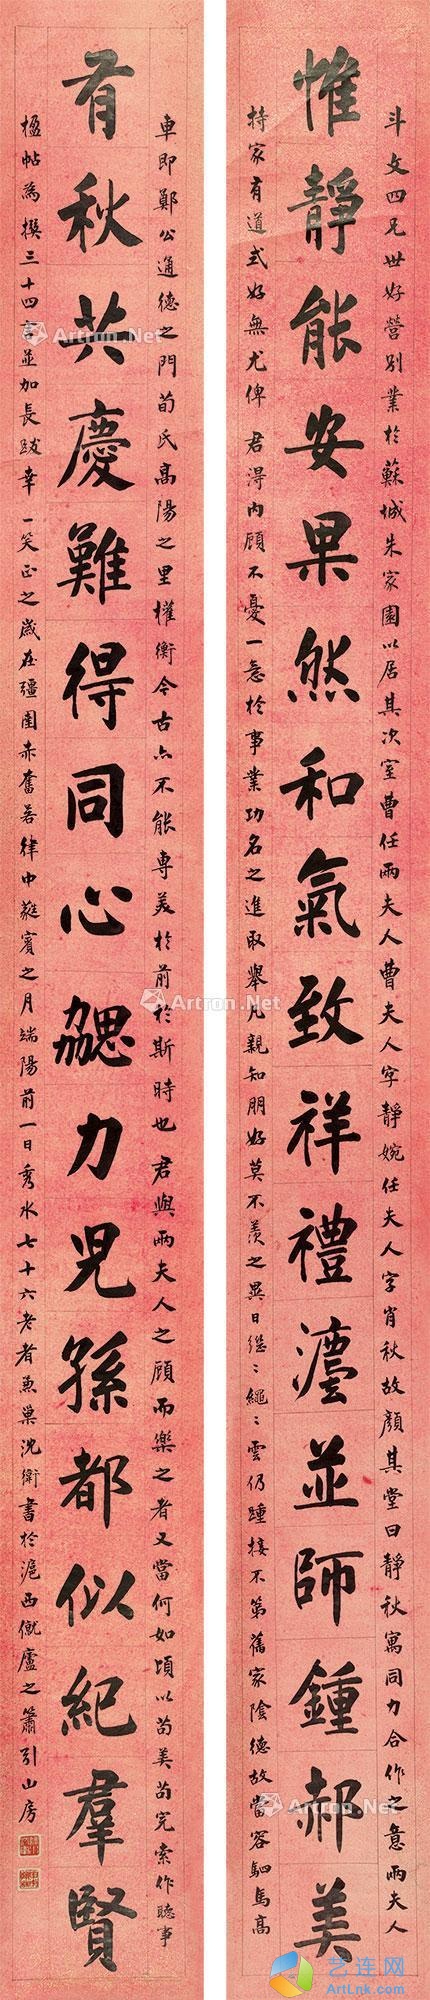 斗文四兄世好營別業於蘇城朱家園以居其次室曹任兩夫人曹夫人字靜婉任夫人字肖秋故顏其堂曰靜秋寓同力合作之意兩夫人
惟靜能安果然和氣致祥禮灋並師鍾郝美
持家有道式好無尤俾君得內顧不憂一意於事業功名之進取舉凡親知朋好莫不羨之異日繼繼繩繩雲仍踵接不第舊家陰德故當容駟馬高
車即鄭公通德之門荀氏高陽之里權衡今古亦不能專美於前於斯時也君與兩夫人之顧而樂之者又當何如頃以苟美苟完索作聽事
有秋共慶難得同心勰力兒孫都似紀羣賢
楹帖為撰三十四言並加長跋幸一笑正之歲在彊圉赤奮若律中蕤賓之月端陽前一日秀水七十六老者兼巢沈衛書於滬西僦廬之簫引山房
Artron.Net
Artron.Net
Artron.Net
Artron.Net
Artron.Net
Artron.Net
艺连网
ArtLink.com